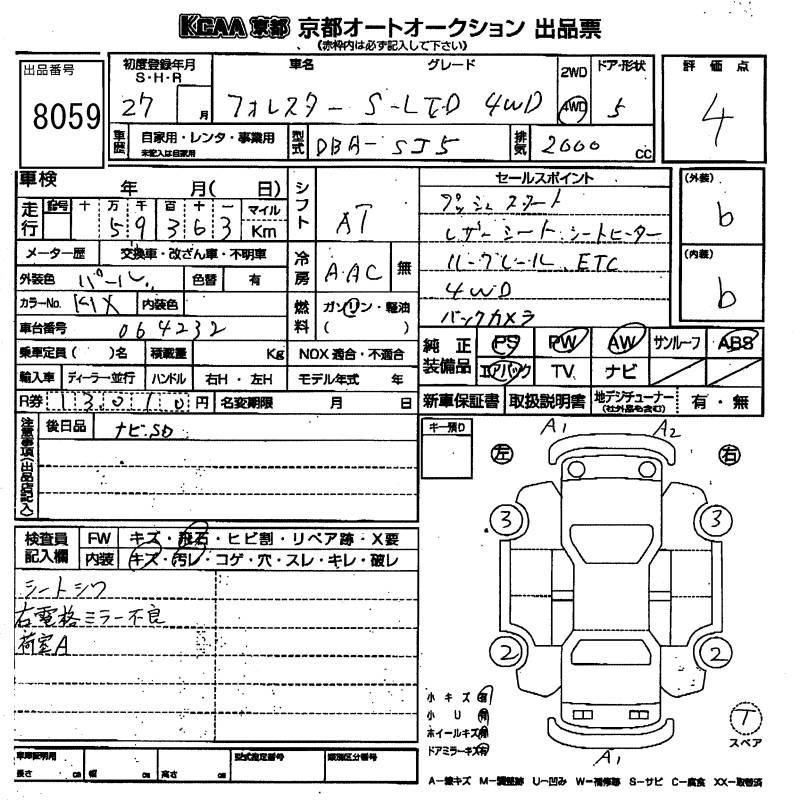 KCAA 京都 京都オートオークション 出品票
(赤枠内は必ず記入して下さい)
出品番号 8059
初度登録年月 S・H・R 27 月
車名 グレード フォレスター S-LTD 4WD
2WD 4WD
ドア・形状 5
評価点 4
車歴 自家用・レンタ・事業用 未記入は自家用
型式 DBA-SJ5
排気 2000 cc
車検 年 月( 日)
走行 記号 十 万 千 百 十 一 マイル
59363 Km
シフト AT
セールスポイント
プッシュスタート
レザーシート.シートヒーター
ルーフレール.ETC
4WD
バックカメラ
(外装) b
(内装) b
メーター歴 交換車・改ざん車・不明車
冷房 A・AC 無
外装色 パール. 色替 有
カラーNo. K1X 内装色
燃料 ガソリン・軽油 ( )
車台番号 064232
乗車定員( )名 積載量 Kg NOX適合・不適合
輸入車 ディーラー並行 ハンドル 右H・左H モデル年式 年
R券 13010円 名変期限 月 日
純正装備品 PS PW AW サンルーフ ABS
エアバック TV ナビ
新車保証書 取扱説明書 地デジチューナー (社外品も含む) 有・無
注意事項(出品店記入)
後日品 ナビSD
キー預り
A1 A2
左 右
3 3
2 2
検査員記入欄 FW キズ・飛石・ヒビ割・リペア跡・X要
内装 キズ・汚レ・コゲ・穴・スレ・キレ・破レ
シートシワ
右電格ミラー不良
荷室A
小キズ 有
小U 有
ホイールキズ 有
ドアミラーキズ 有
A1
T スペア
車庫証明用 長さ cm 幅 cm 高さ cm 型式指定番号 類別区分番号
A-線キズ M-調整跡 U-凹み W-補修跡 S-サビ C-腐食 XX-取替済